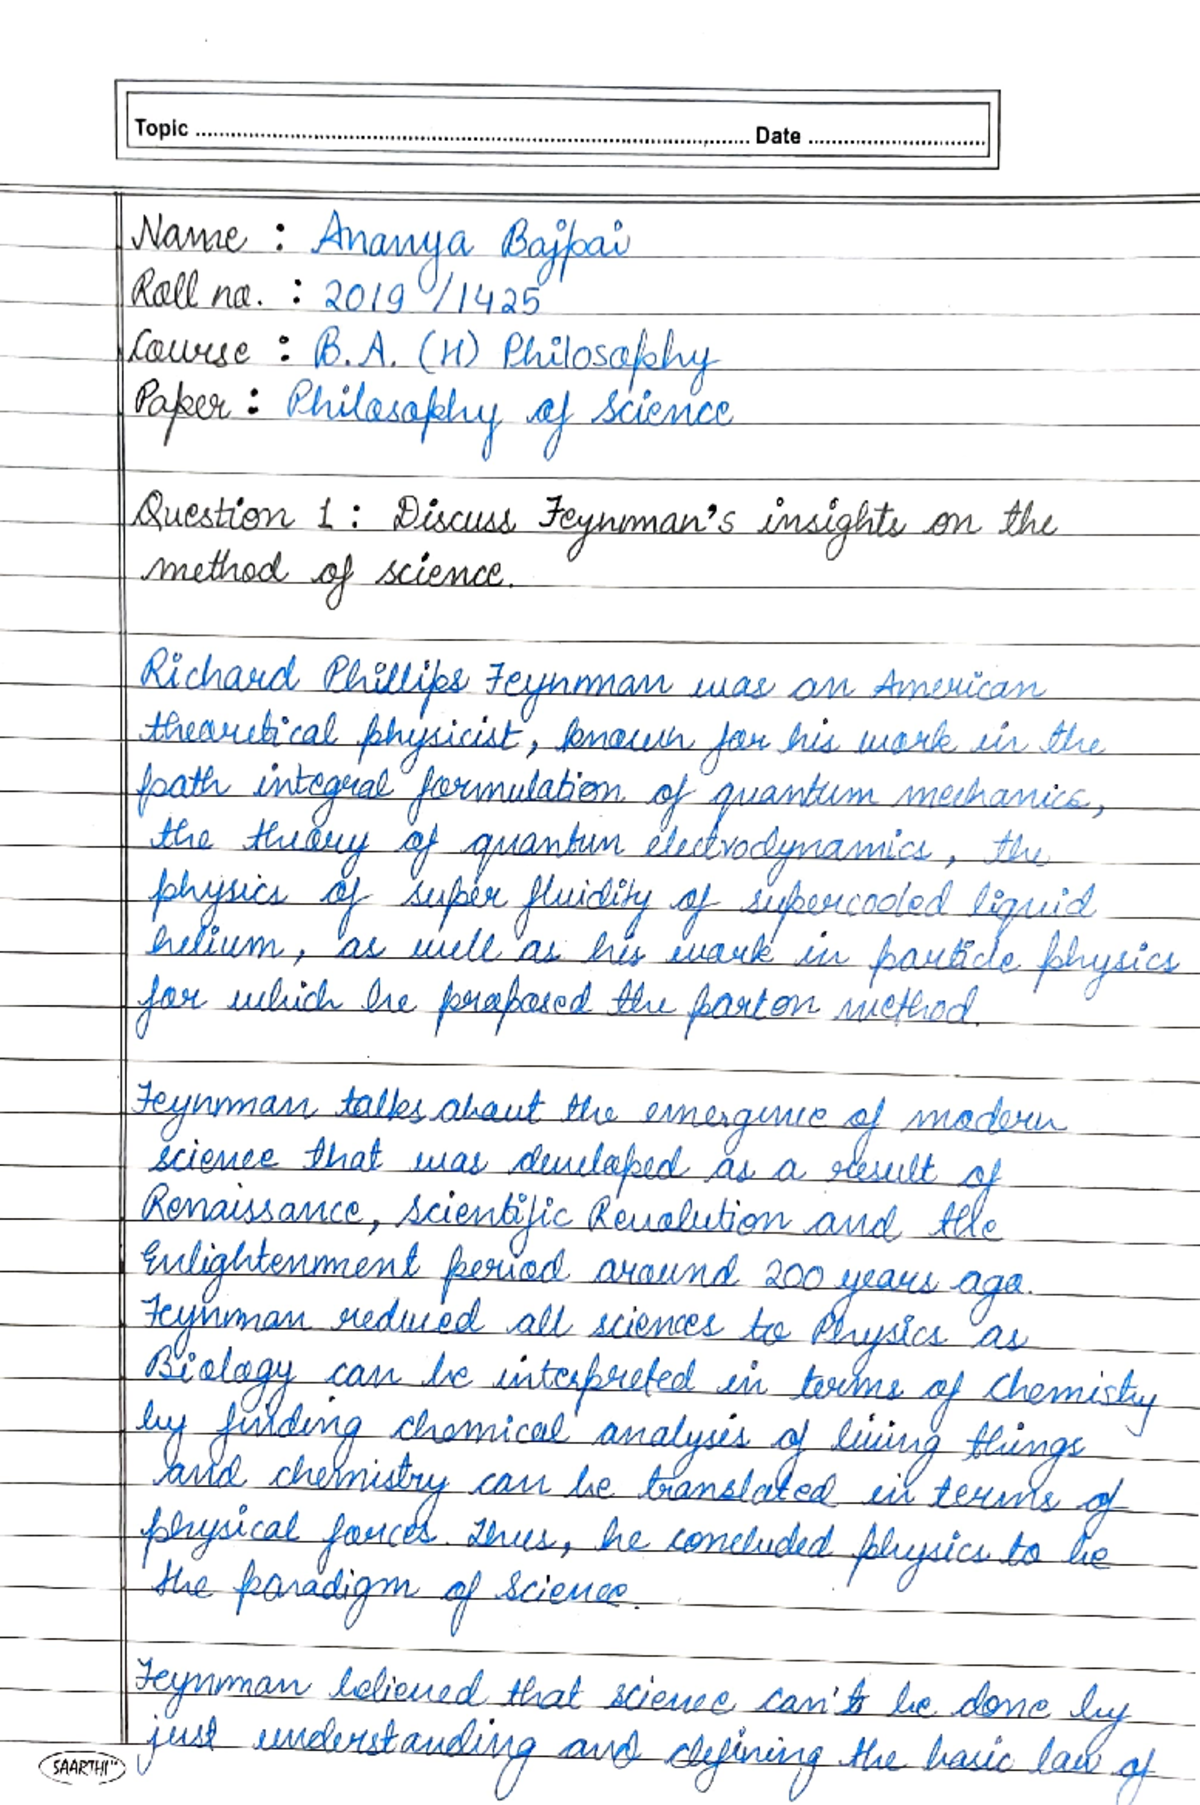 Topic ........................................ Date ....................
Name : Ananya Bajpai
Roll no. : 2019/1425
Course : B.A. (H) Philosophy
Paper : Philosophy of science
Question 1 : Discuss Feynman's insights on the
method of science.
Richard Phillips Feynman was an American
theoretical physicist, known for his work in the
path integral formulation of quantum mechanics,
the theory of quantum electrodynamics, the
physics of super fluidity of supercooled liquid
helium, as well as his work in particle physics
for which he proposed the parton method.
Feynman talks about the emergence of modern
science that was developed as a result of
Renaissance, Scientific Revolution and the
Enlightenment period around 200 years ago.
Feynman reduced all sciences to Physics as
Biology can be interpreted in terms of Chemistry
by finding chemical analysis of living things
and chemistry can be translated in terms of
physical forces. Thus, he concluded physics to be
the paradigm of science.
Feynman believed that science can't be done by
just understanding and defining the basic law of
SAARTHI™